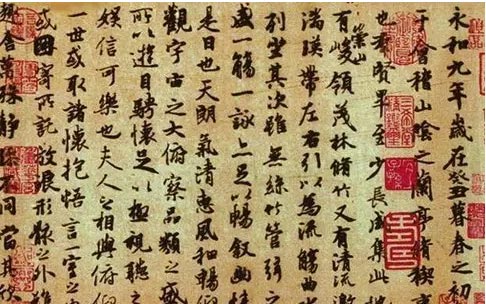 永和九年歲在癸丑暮春之初
于會稽山陰之蘭亭脩禊
也群賢畢至少長咸集此
有崇山峻領茂林脩竹又有清流激
湍暎帶左右引以為流觴曲水
列坐其次雖無絲竹管弦之
盛一觴一詠亦足以暢敘幽情
是日也天朗氣清惠風和暢仰
觀宇宙之大俯察品類之盛
所以遊目騁懷足以極視聽之
娛信可樂也夫人之相與俯仰
一世或取諸懷抱悟言一室之
或因寄所託放浪形骸之外雖
趣舍萬殊靜躁不同當其欣